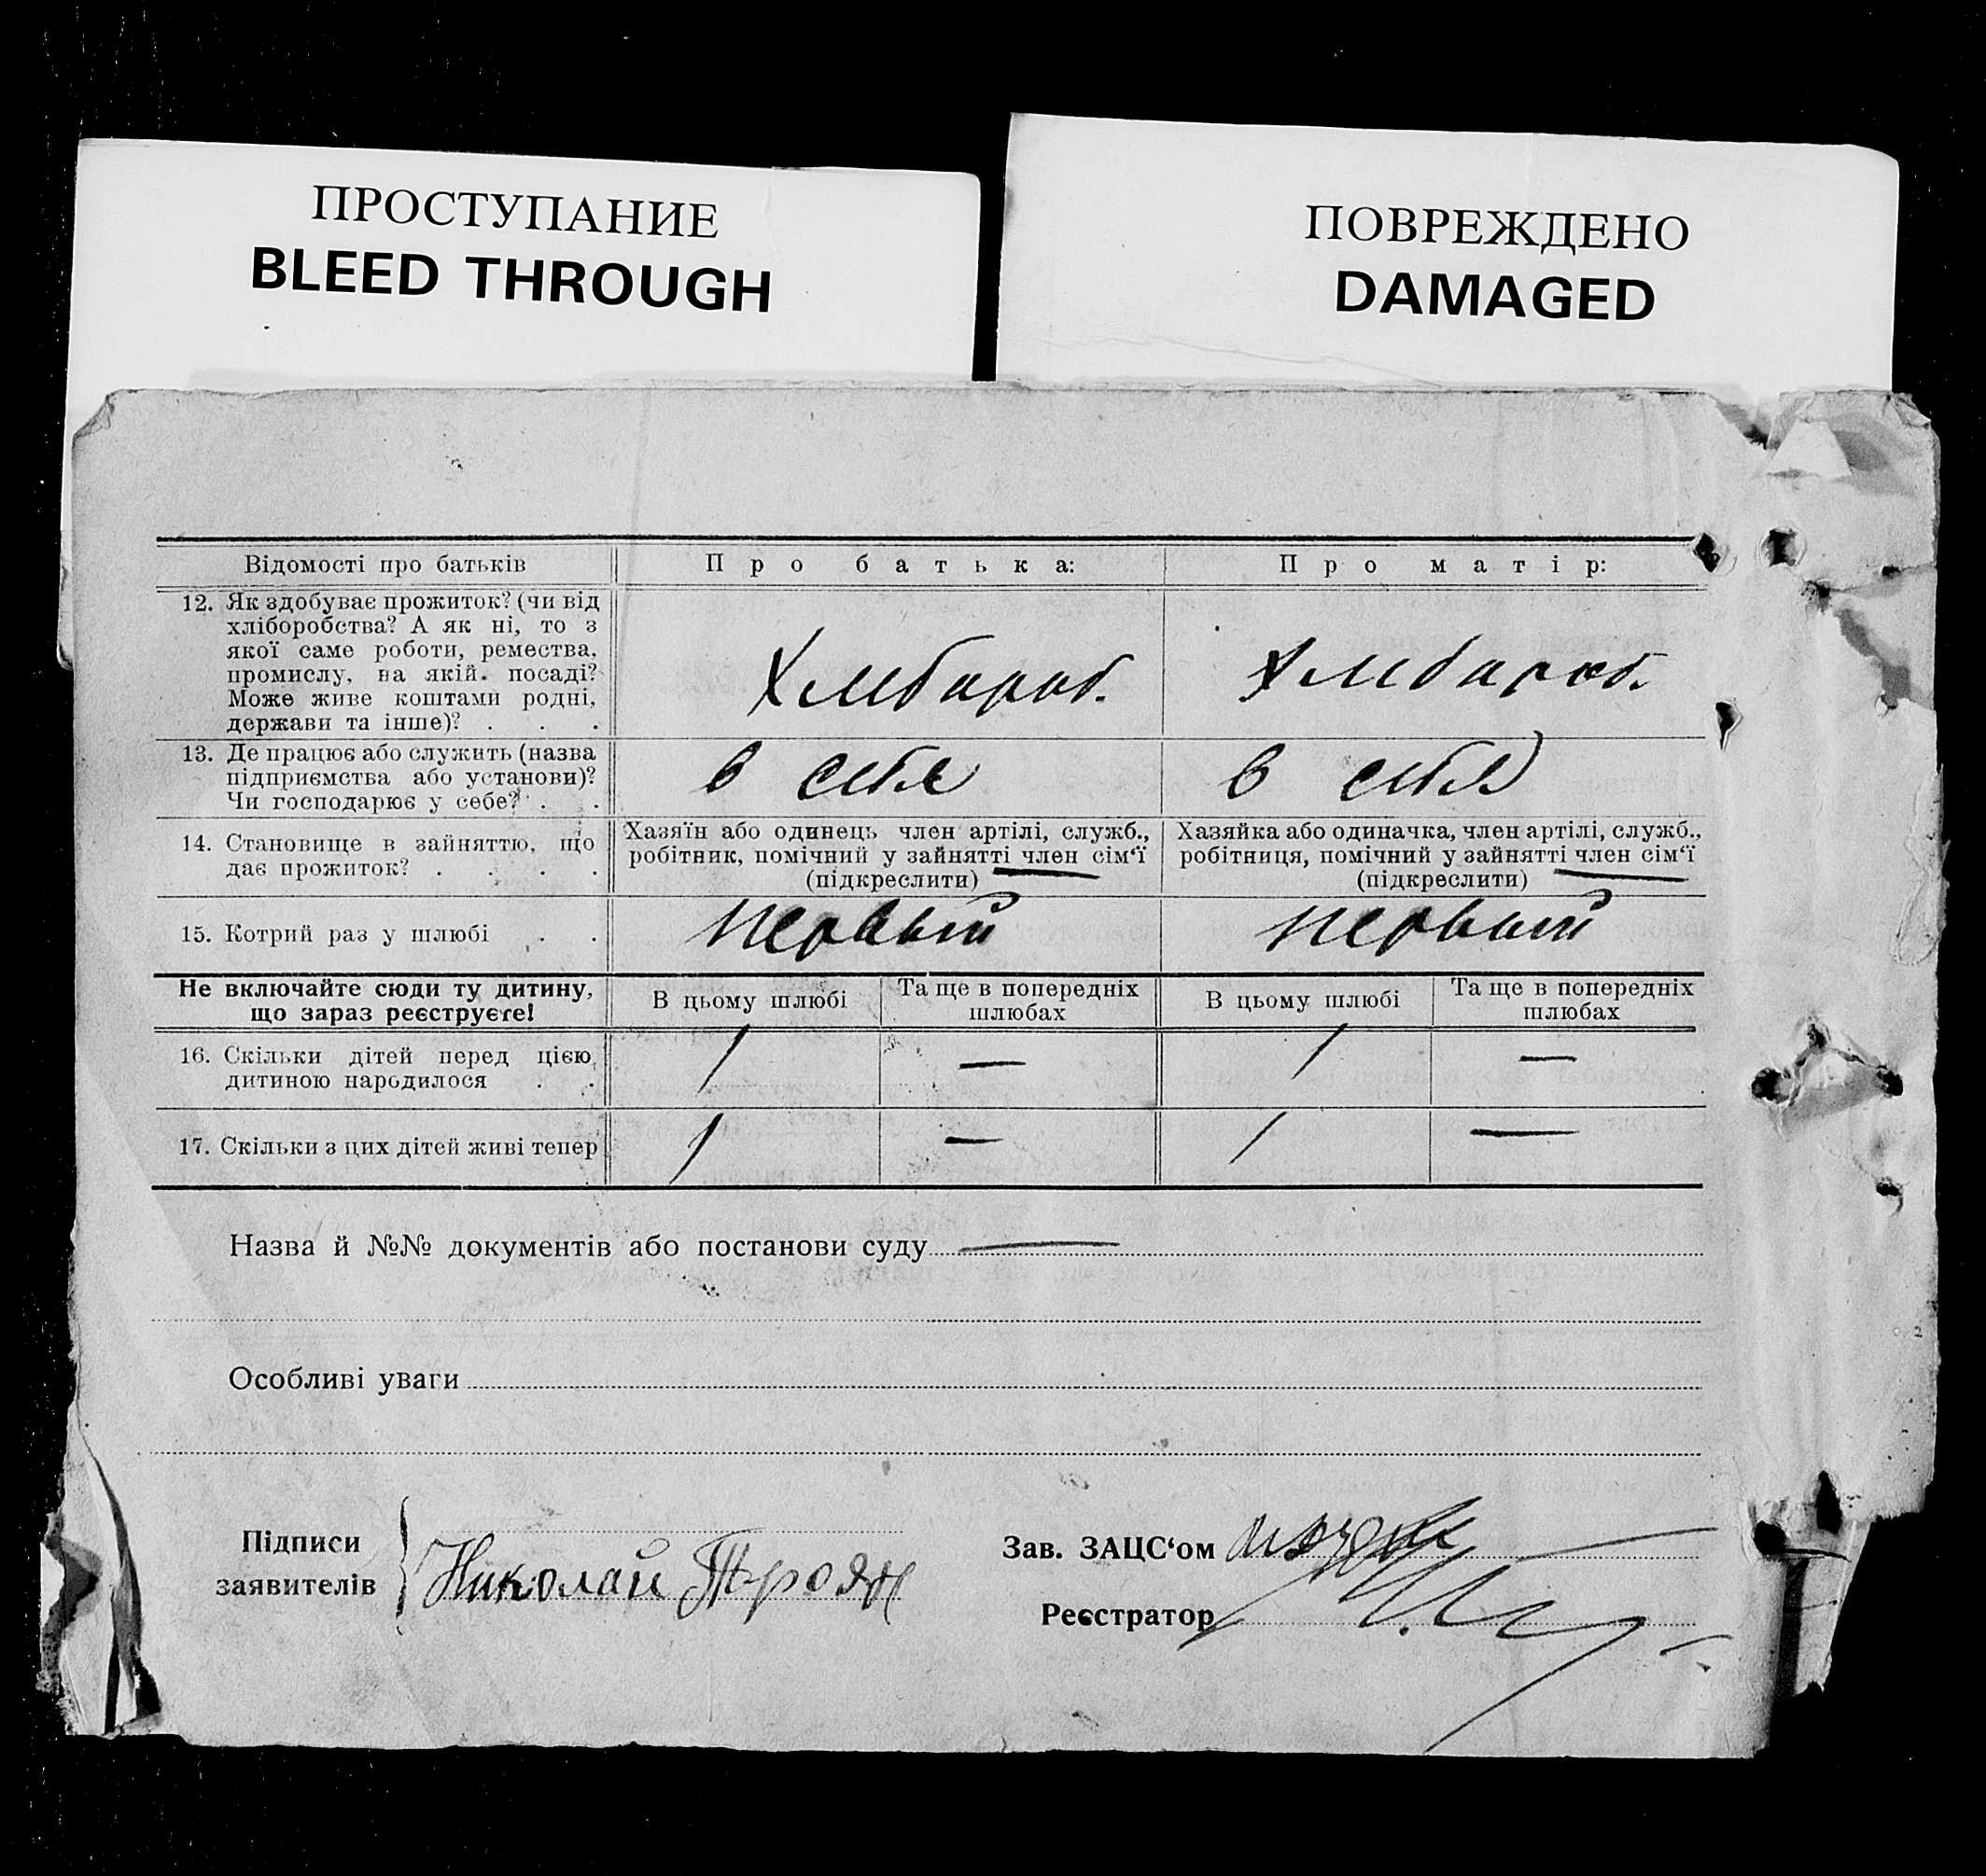 ПРОСТУПАНИЕ
BLEED THROUGH
ПОВРЕЖДЕНО
DAMAGED
Відомості про батьків
Про батька:
Про матір:
12. Як здобуває прожиток? (чи від
хліборобства? А як ні, то з
якої саме роботи, ремества,
промислу, на якій посаді?
Може живе коштами родні,
держави та інше)? . . .
Хлибороб.
Хлибороб.
13. Де працює або служить (назва
підприємства або установи)?
Чи господарює у себе? . .
в себя
в себя
14. Становище в зайняттю, що
дає прожиток? . . . .
Хазяїн або одинець член артілі, служб.,
робітник, помічний у зайнятті член сім‘ї
(підкреслити)
Хазяйка або одиначка, член артілі, служб.,
робітниця, помічний у зайнятті член сім‘ї
(підкреслити)
15. Котрий раз у шлюбі . .
первый
первый
Не включайте сюди ту дитину,
що зараз реєструєте!
В цьому шлюбі
Та ще в попередніх
шлюбах
В цьому шлюбі
Та ще в попередніх
шлюбах
16. Скільки дітей перед цією
дитиною народилося . .
1
—
1
—
17. Скільки з цих дітей живі тепер
1
—
1
—
Назва й №№ документів або постанови суду —
Особливі уваги
Підписи
заявителів
Николай Троян
Зав. ЗАЦС‘ом
Реєстратор